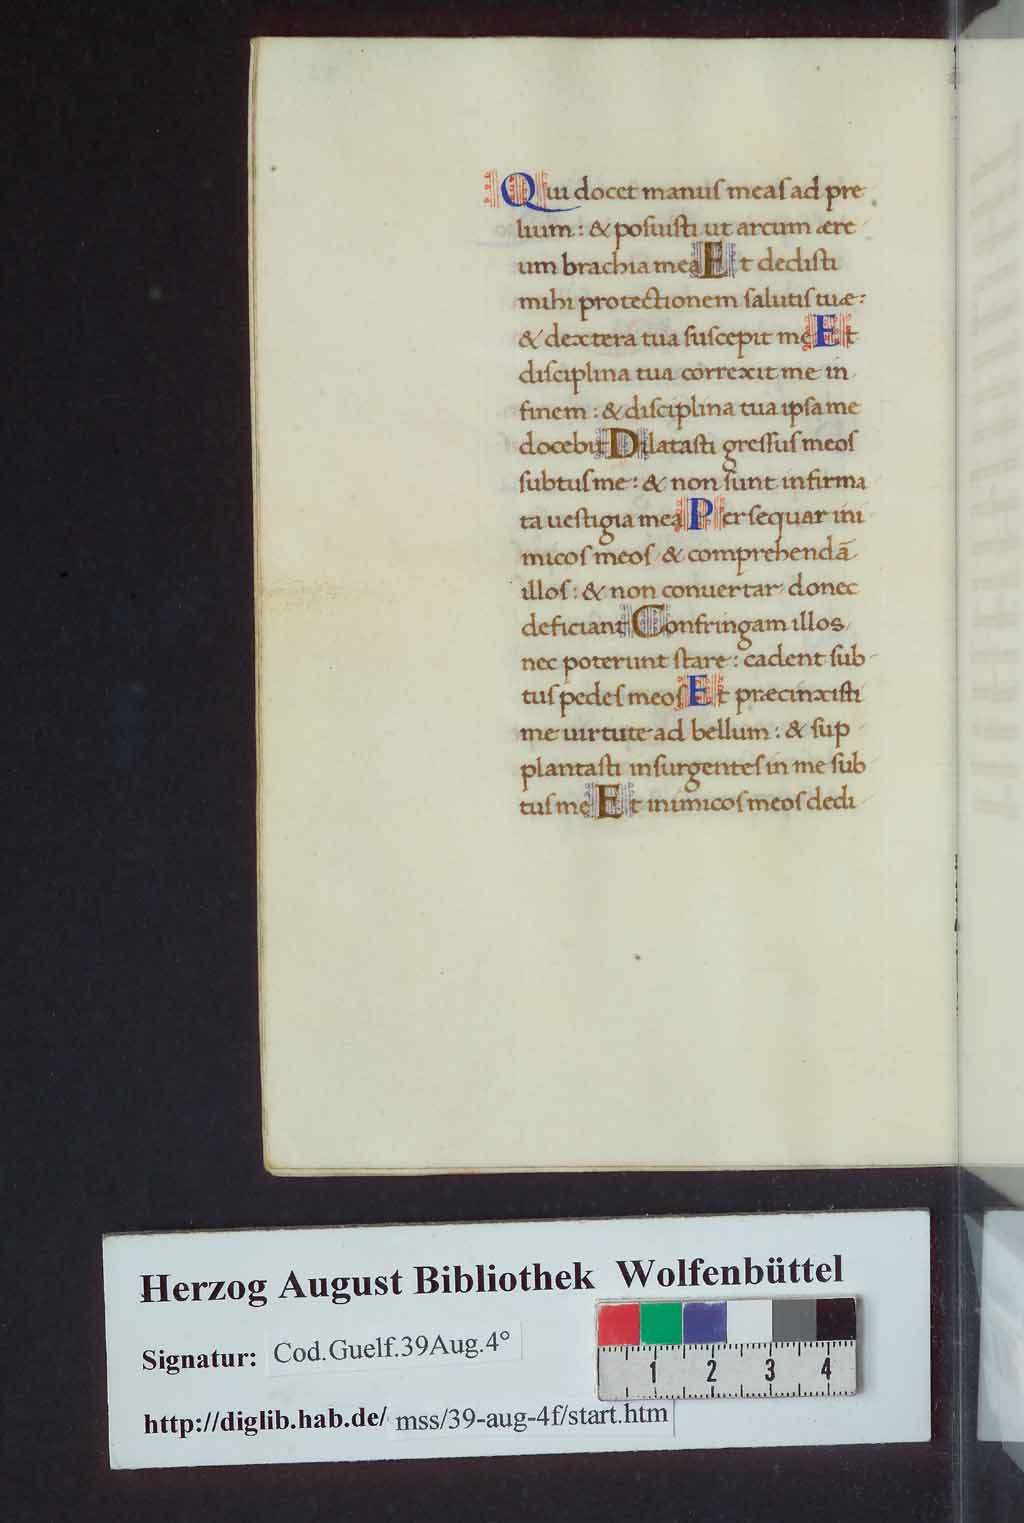 Qui docet manus meas ad pre
lium: & posuisti ut arcum ære
um brachia mea Et dedisti
mihi protectionem salutis tuæ:
& dextera tua suscepit me Et
disciplina tua correxit me in
finem: & disciplina tua ipsa me
docebit Dilatasti gressus meos
subtus me: & non sunt infirma
ta uestigia mea Persequar ini
micos meos & comprehendā
illos: & non conuertar donec
deficiant Confringam illos
nec poterunt stare: cadent sub
tus pedes meos Et præcinxisti
me uirtute ad bellum: & sup
plantasti insurgentes in me sub
tus me Et inimicos meos dedi
Herzog August Bibliothek Wolfenbüttel
Signatur: Cod.Guelf.39Aug.4°
http://diglib.hab.de/ mss/39-aug-4f/start.htm
1 2 3 4